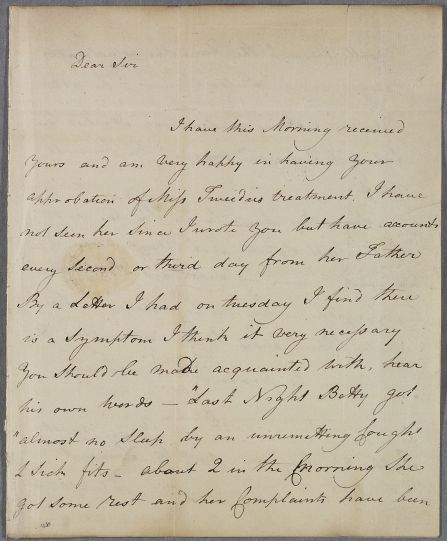 Dear Sir
I have this Morning received
yours and am very happy in having your
approbation of Miss Tweedies treatment. I have
not seen her since I wrote you but have accounts
every second or third day from her Father
By a Letter I had on tuesday I find there
is a symptom I think it very necessary
you should be made acquainted with, hear
his own words – "Last Night Betty got
"almost no sleep by an unremitting Cough &
& sick fits – about 2 in the morning she
got some rest and her Complaints have been